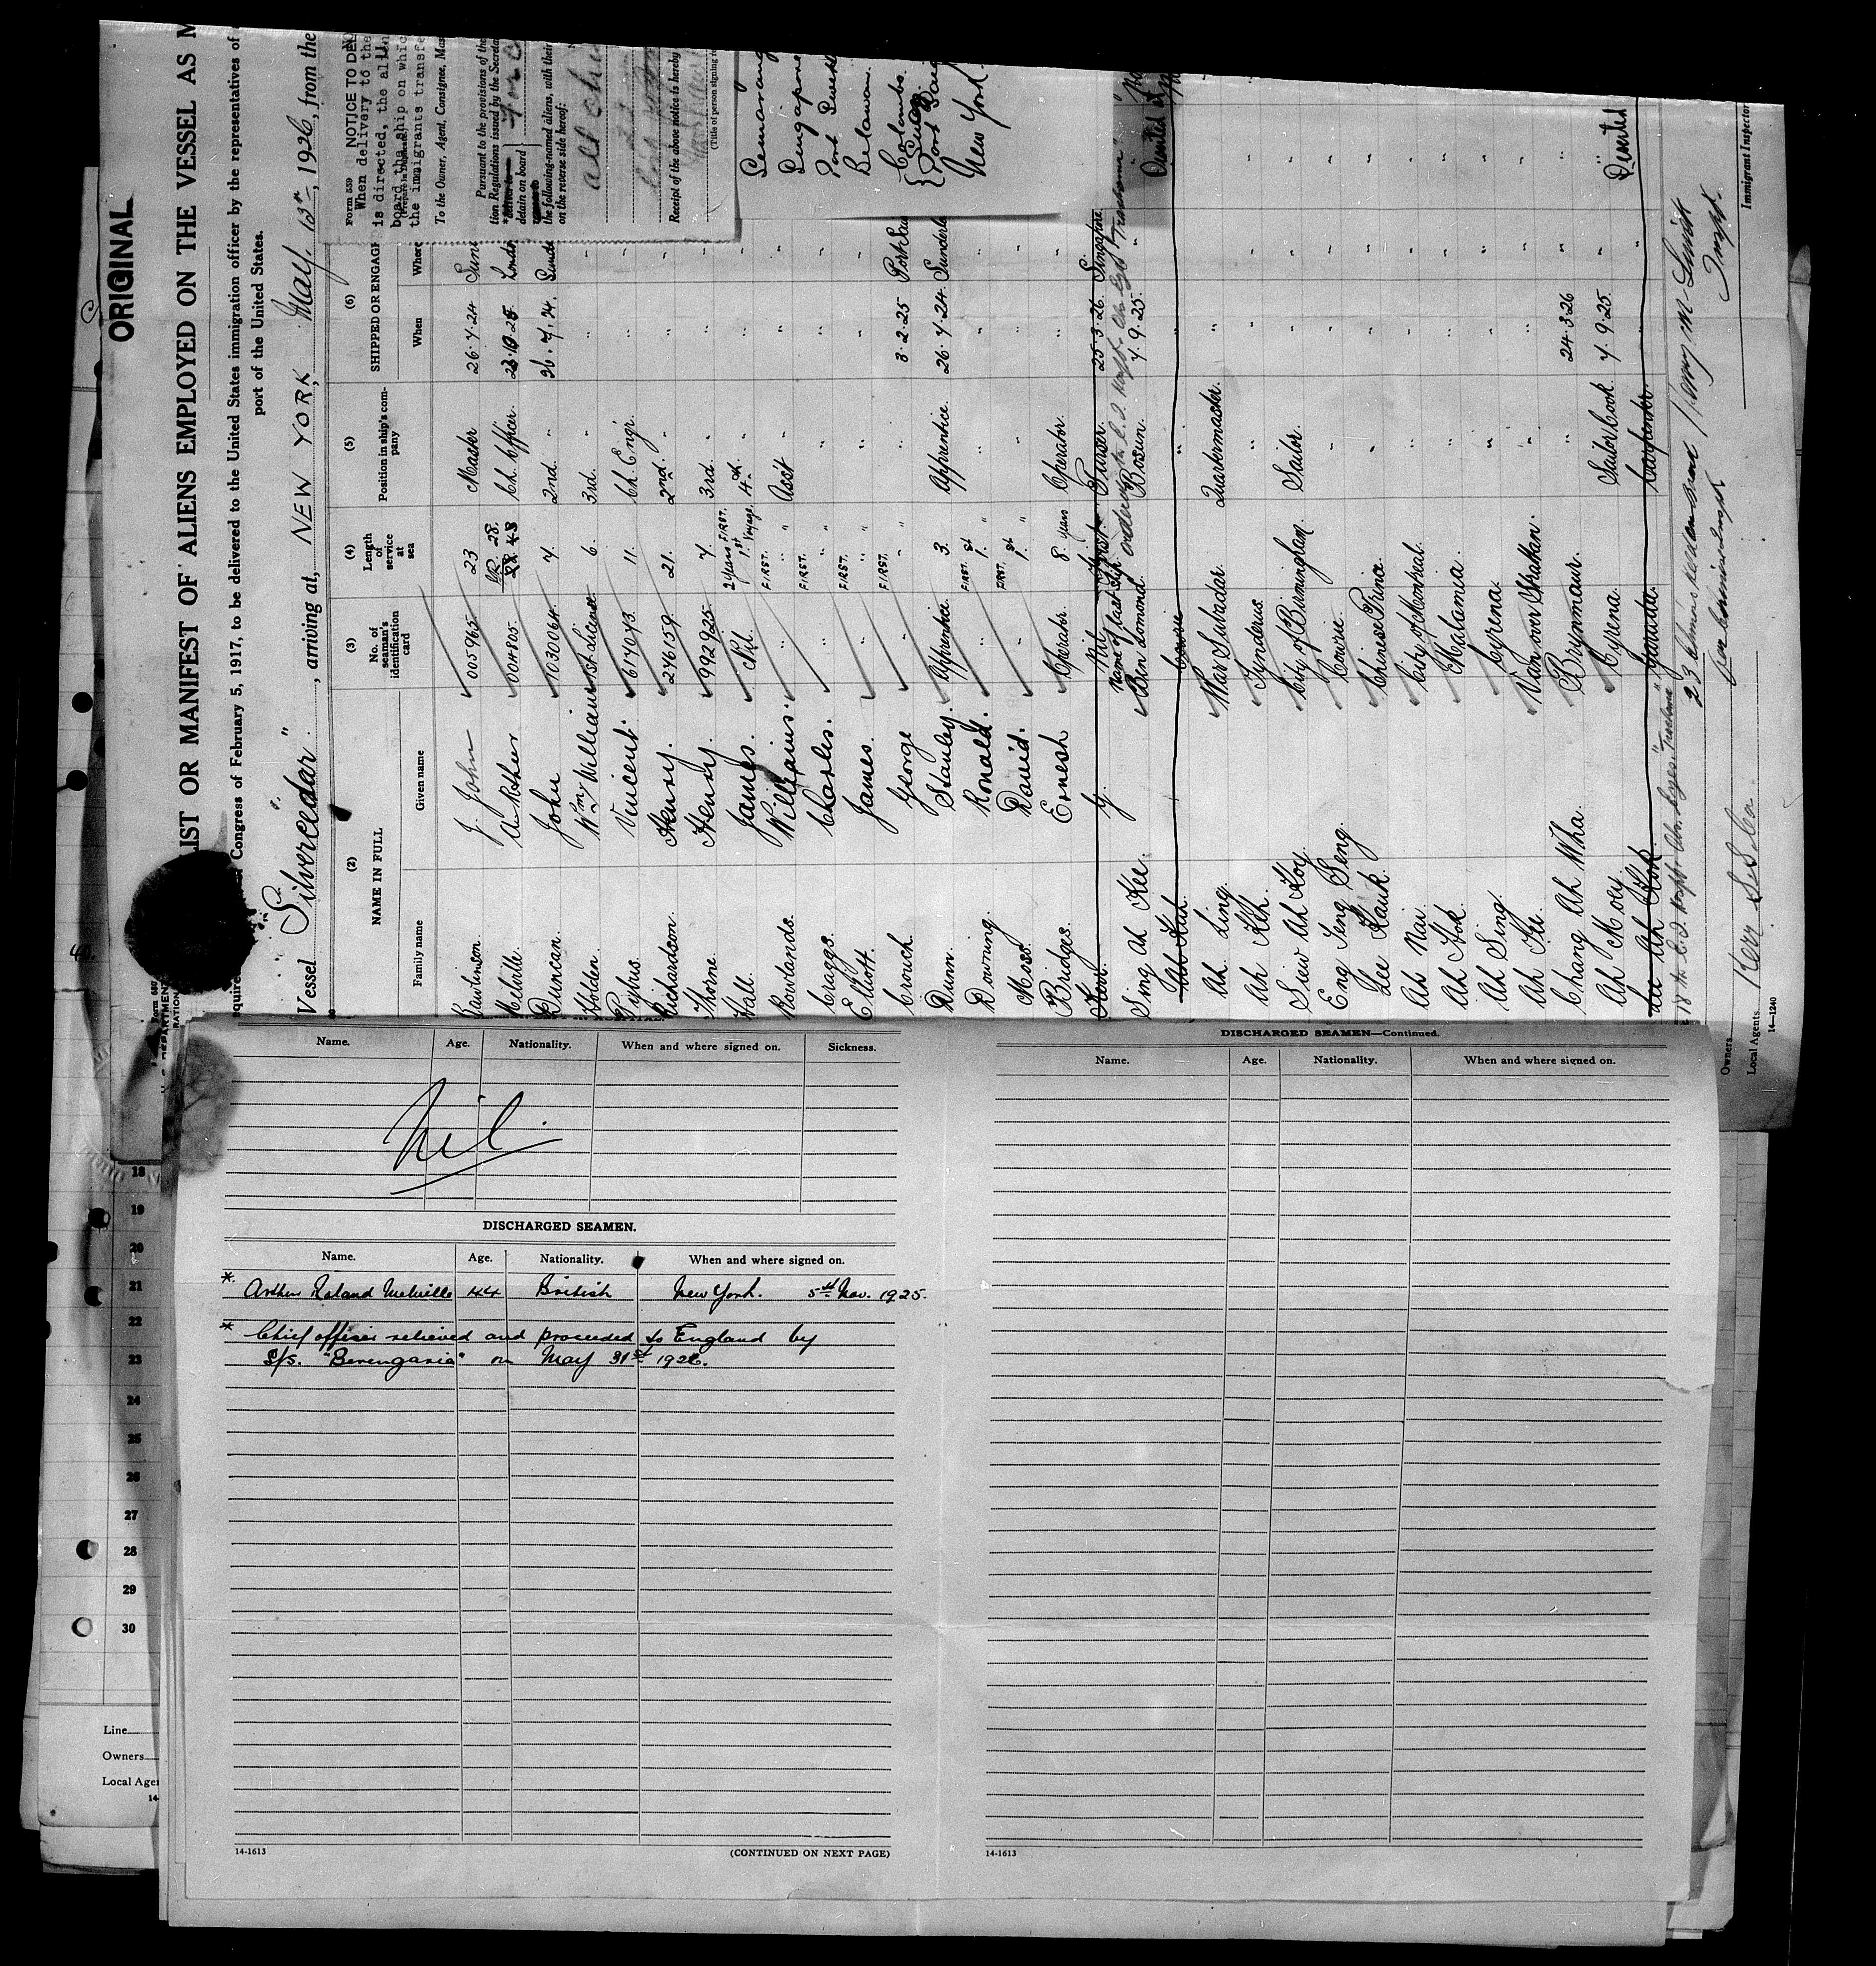 ORIGINAL
LIST OR MANIFEST OF ALIENS EMPLOYED ON THE VESSEL AS M
Congress of February 5, 1917, to be delivered to the United States immigration officer by the representatives of
port of the United States.
Vessel Silvercedar, arriving at, NEW YORK, May, 1926, from the
(2) NAME IN FULL
Family name Given name
(3) No. of seaman's identification card
(4) Length of service at sea
(5) Position in ship's company
(6) SHIPPED OR ENGAG
When Where
J. John 005965 23 Master 26.7.24
Melville Arthur 004805 Ch. Officer
Duncan John 1030064 7 2nd "
Holden Wm William 1st License 6. 3rd. "
Pybus Vincent. 617073 11. Ch. Engr. "
Richardson Henry. 276159 21. 2nd. " "
Thorne Henry. 992925 7. 3rd. " "
Hall James. Nil. 2 years FIRST. 1st Voyage. 4th " "
Rowlands. William. " FIRST. " Asst " "
Craggs. Charles. " FIRST. " " "
Elliott. James. " FIRST. " " "
Crouch. George " FIRST. " " 3.2.25
Dunn. Stanley. Apprentice. 3. Apprentice. 26.7.24
Downing Ronald. " FIRST. 1st " "
Moss. David. " FIRST. 1st " "
Bridges. Ernest Operator. 8 years Operator "
Y. Nil First Purser. 25.3.26. Singapore.
name of last ship
Sing Ah Kee. Ben Lomond Bosun. 7.9.25. " Deserted
Cowrie
Ah Ling War Subadar Quartermaster. " "
Ah Kih. Tyndarus " " "
Siew Ah Koy City of Birmingham Sailor. " "
Eng Teng Seng Cowrie. " " "
Lee Kauk Chinese Prince. " " "
Ah Nai City of Montreal. " " "
Ah Hok Halama " " "
Ah Sing Cyrena " " "
Ah Fee. " " "
Chang Ah Wha. Brynmaur. " 24.3.26 "
Ah Moey. Cyrena. Sailor Cook. 7.9.25. " Deserted
Lee Ah Kok Carpenter. " "
Immigrant Inspector
Owners
Local Agents
14—1240
Form 559 NOTICE TO DE
When delivery to the
is directed, the alien
board the ship on whic
the immigrants transfe
To the Owner, Agent, Consignee, Mas
Pursuant to the provisions of the
tion Regulations issued by the Secreta
detain on board
the following-named aliens, with their
on the reverse side hereof:
Receipt of the above notice is hereby
(Title of person signing
Semarang
Belawan.
Colombo.
Suez
Port Said
New York.
Name. Age. Nationality. When and where signed on. Sickness.
Nil.
DISCHARGED SEAMEN.
Name. Age. Nationality. When and where signed on.
* Arthur Roland Melville 44 British New York. 5th Nov. 1925.
* Chief officer relieved and proceeded to England by
S/s. "Berengaria" on May 31st 1926.
14-1613
(CONTINUED ON NEXT PAGE)
DISCHARGED SEAMEN—Continued.
Name. Age. Nationality. When and where signed on.
14-1613
18
19
20
21
22
23
24
25
26
27
28
29
30
Line
Owners
Local Age
14-